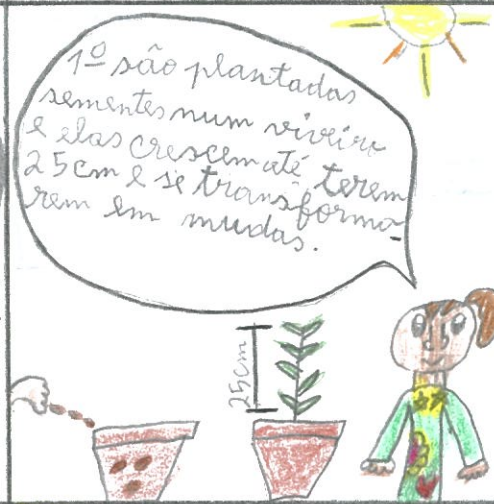 1º são plantadas
sementes num viveiro
e elas crescem até terem
25cm e se transforma-
rem em mudas.
25cm